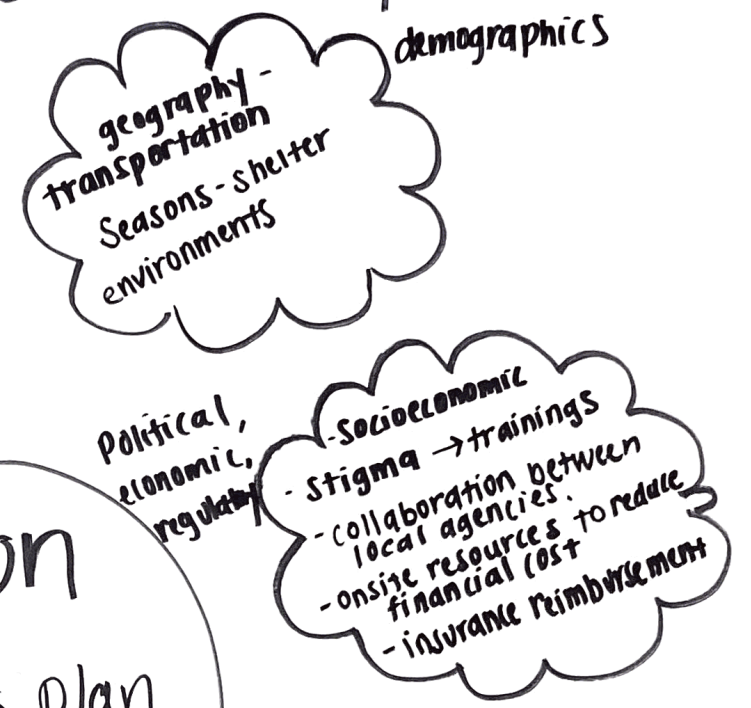 demographics
geography -
transportation
Seasons - shelter
environments
Political,
economic,
regulatory
- Socioeconomic
- Stigma → trainings
- collaboration between
local agencies.
- onsite resources to reduce
financial cost
- insurance reimbursement
on
plan